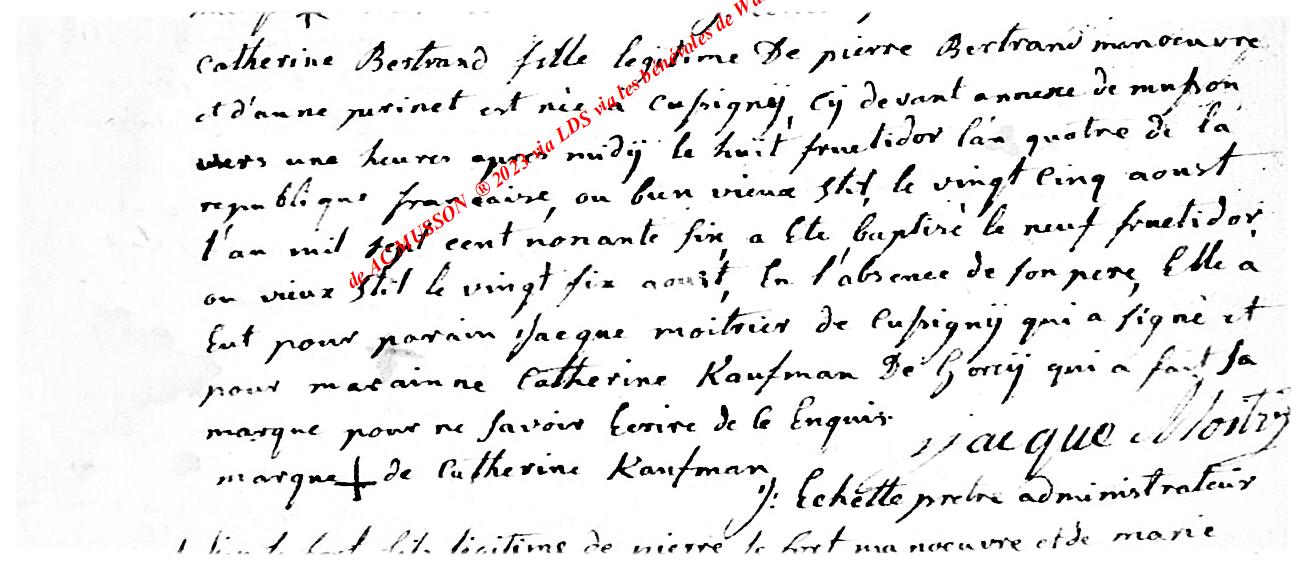 Catherine Bertrand fille legitime De pierre Bertrand manoeuvre
et d'anne perinet est née a Cussignÿ, Cÿ devant annexe de musson
vers une heures apres midÿ le huit fructidor l'an quatre de la
republique française, ou bien vieux Stil, le vingt Cinq aoust
l'an mil sept cent nonante six, a Ete baptisé le neuf fructidor,
ou vieux Stil le vingt six aoust, En l'absence de son pere, Elle a
Eut pour parain Jacque moitrier de Cussignÿ qui a signé et
pour marainne Catherine Kaufman De Gorcÿ qui a fait sa
marque pour ne savoir Ecrire de ce Enquis.
Jacque Moitri
marque de Catherine Kaufman
J: Echette pretre administrateur
legitime de pierre le fort manoeuvre et de marie
de ACMUSSON ® 2023 via LDS via les bénévoles de